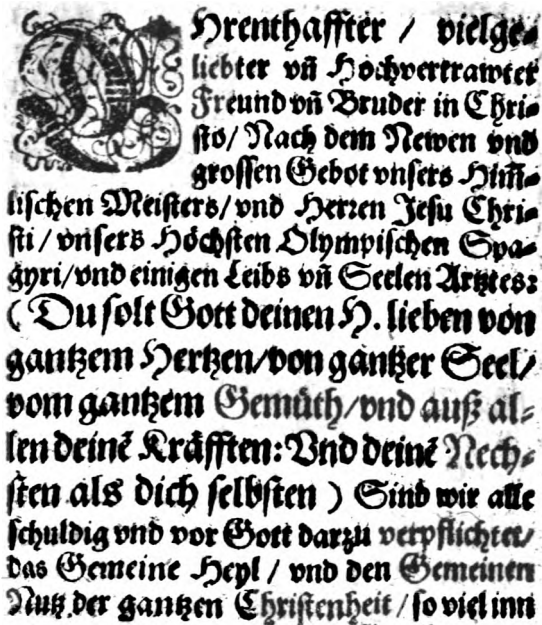 EHrenthaffter / vielge-
liebter vñ Hochvertrawter
Freund vñ Bruder in Chri-
sto/ Nach dem Newen vnd
grossen Gebot vnsers Him̃-
lischen Meisters/ vnd Herren Jesu Chri-
sti / vnsers Höchsten Olympischen Spa-
gyri/vnd einigen Leibs vñ Seelen Artztes:
( Du solt Gott deinen H. lieben von
gantzem Hertzen/von gantzer Seel/
vom gantzem Gemüth/vnd auß al-
len deinẽ Kräfften: Vnd deinẽ Nech-
sten als dich selbsten ) Sind wir alle
schuldig vnd vor Gott darzu verpflichtet/
das Gemeine Heyl / vnd den Gemeinen
Nutz der gantzen Christenheit / so viel inn